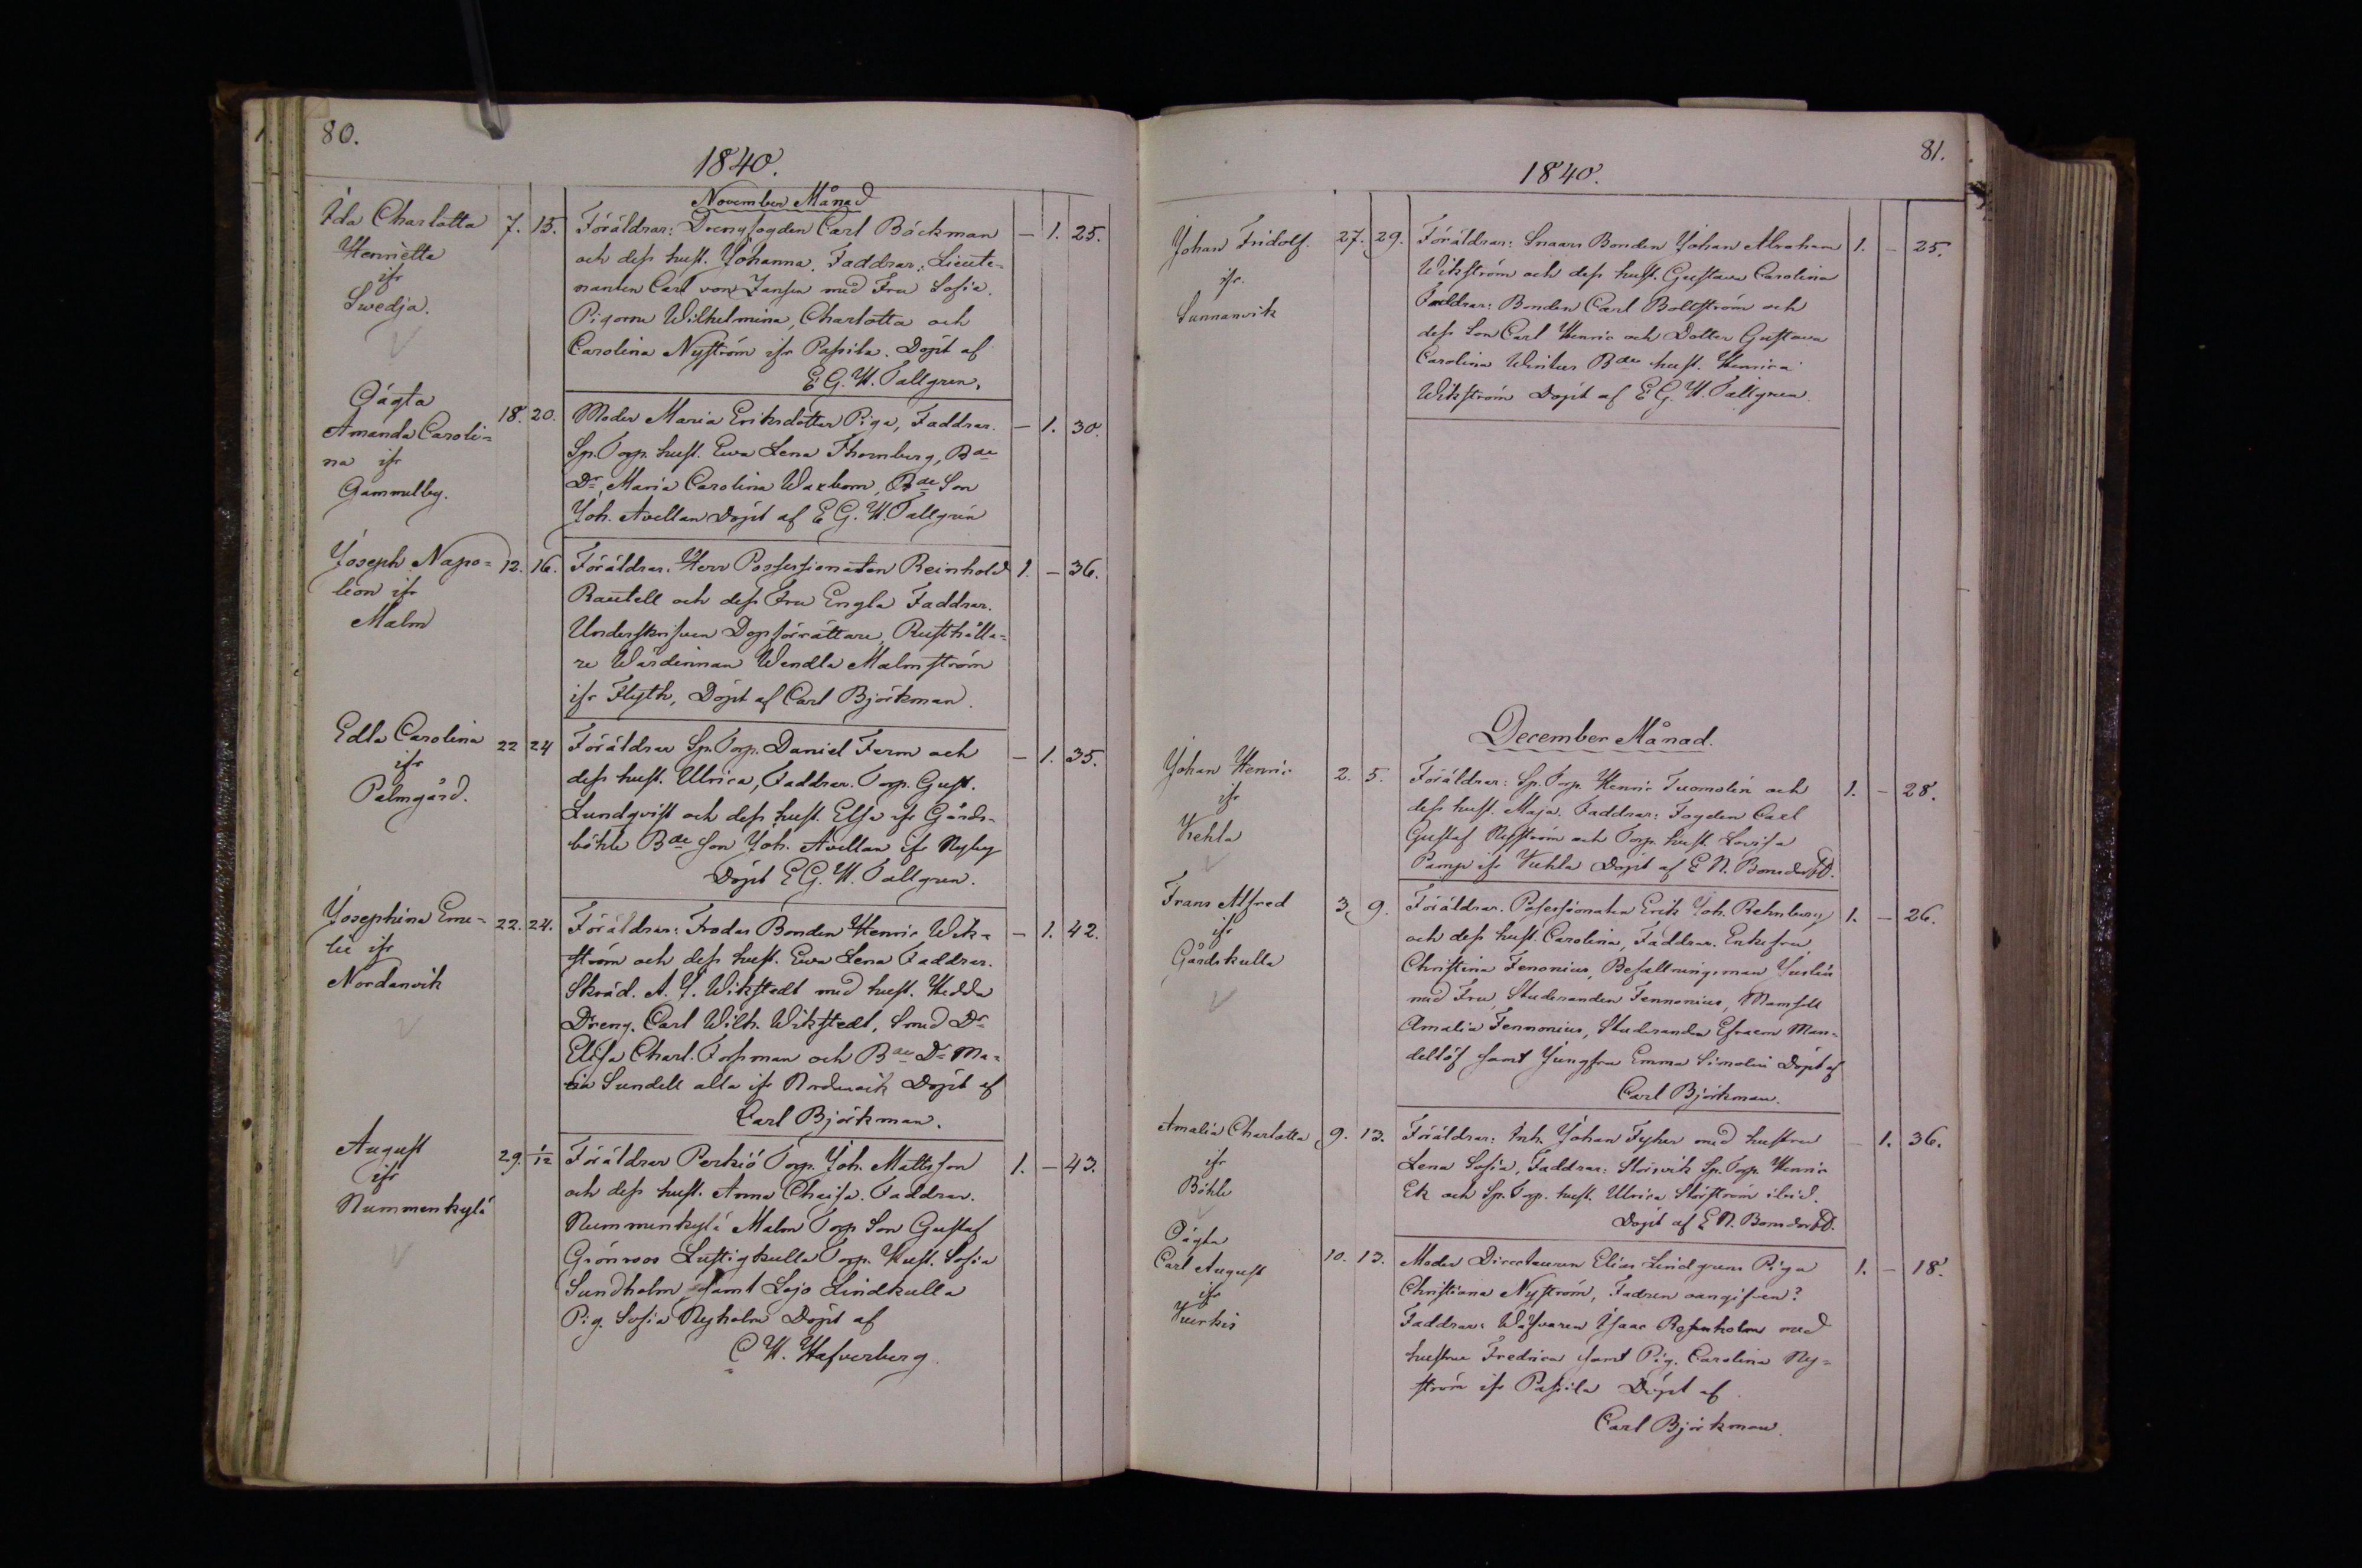 80.
1840.
November Månad
Ida Charlotta 7. 15. Föräldrar: Drengfogden Carl Böckman — 1. 25.
Henrietta och dess hust. Johanna. Faddrar: Lieute-
ifr nanten Carl von Jansen med Fru Sofia.
Swedja. Pigorna Wilhelmina, Charlotta och
Carolina Nyström ifr Passila. Döpt af
E. G. H. Tallgren.
Oägta
Amanda Caroli- 18. 20. Moder Maria Eriksdotter Piga, Faddrar. — 1. 30.
na ifr Sp. Torp. hust. Ewa Lena Thornberg, Bde
Gammelby. Dr. Maria Carolina Waxbom, Bde Son
Joh. Avellan Döpt af E G. H. Tallgren
Joseph Napo- 12. 16. Föräldrar. Herr Possessionaten Reinhold 1. — 36.
leon ifr Rautell och dess Fru Engla Faddrar.
Malm Underskrifven Dopförrättare, Rusthålla-
re Wärdinnan Wendla Malmström
ifr Flyth, Döpt af Carl Björkman.
Edla Carolina 22 24 Föräldrar Sp. Torp. Daniel Ferm och — 1. 35.
ifr dess hust. Ulrica, Faddrar. Torp. Gust.
Palmgård. Lundqvist och dess hust. Elsa ifr Gårds-
böhle Bde Son Joh. Avellan ifr Nyby
Döpt E G. H. Tallgren.
Josephina Emi- 22. 24. Föräldrar: Frodes Bonden Henric Wik- — 1. 42.
lie ifr ström och dess hust. Ewa Lena Faddrar.
Nordanvik Skräd. A. J. Wikstedt med hust. Hedda
Dreng. Carl Wilh. Wikstedt, Smed Dr
Elisa Charl. Forsman och Bde Dr Ma-
ria Sundell alla ifr Nordanvik Döpt af
Carl Björkman.
August 29. 1/12 Föräldrar Perkiö Torp. Joh. Mattsson 1. — 43.
ifr och dess hust. Anna Chaisa. Faddrar.
Nummenkylä Nummenkylä Malm Torp Son Gustaf
Grönroos Lustigkulla Torp. Hust. Sofia
Sundholm, samt Lojo Lindkulla
Pig. Sofia Nyholm Döpt af
C H. Hafverberg.
81.
1840.
Johan Fridolf. 27. 29. Föräldrar: Snaars Bonden Johan Abraham 1. — 25.
ifr. Wikström och dess hust. Gustava Carolina
Sunnanvik Faddrar: Bonden Carl Boltström och
dess Son Carl Henric och Dotter Gustava
Carolina Winter Bde hust. Henrica
Wikström Döpt af E G. H. Tallgren.
December Månad.
Johan Henric 2. 5. Föräldrar: Sp. Torp. Henric Tuomolin och 1. — 28.
ifr dess hust. Maja. Faddrar: Fogden Carl
Vehla Gustaf Nyström och Torp. hust. Lovisa
Pamp ifr Vehla Döpt af E N. Bonsdorff.
Frans Alfred 3. 9. Föräldrar. Possessionaten Erik Joh. Rehnberg 1. — 26.
ifr och dess hust. Carolina, Faddrar. Enkefru
Gårdskulla Christina Fenonius, Befallningsman
med Fru, Studeranden Fennonius, Mamsell
Amalia Fennonius, Studeranden Efraem Man-
delöf samt Jungfru Emma Simolin Döpt af
Carl Björkman.
Amalia Charlotta 9. 13. Föräldrar: Inh. Johan Fyher med hustru — 1. 36.
ifr Lena Sofia, Faddrar: Storvik Sp. Torp. Henric
Böhle Ek och Sp. Torp. hust. Ulrica Storström ibid.
Döpt af E N. Bonsdorff.
Oägta
Carl August 10. 13. Moder Directeuren Elias Lindgrens Piga 1. — 18.
ifr Christina Nyström, Fadren oangifven?
Kurkis Faddrar: Wäfvaren Isaac Rosenholm med
hustru Fredrica samt Pig. Carolina Ny-
ström ifr Passila Döpt af
Carl Björkman.